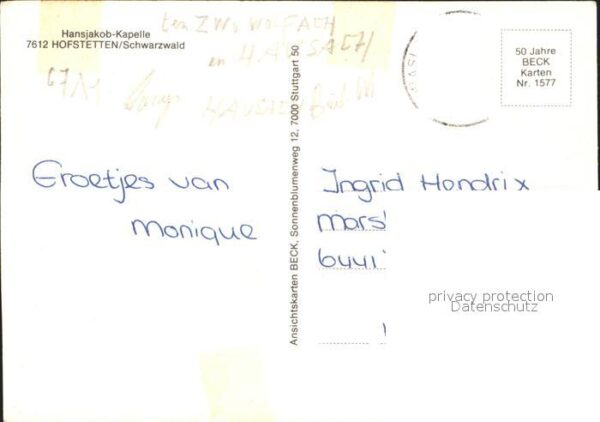 Hansjakob-Kapelle
7612 HOFSTETTEN/Schwarzwald
ten ZW WOLFACH
en HAUSACH
50 Jahre
BECK
Karten
Nr. 1577
Ansichtskarten BECK, Sonnenblumenweg 12, 7000 Stuttgart 50
Groetjes van
Monique
Ingrid Hondrix
mars
6441
privacy protection
Datenschutz